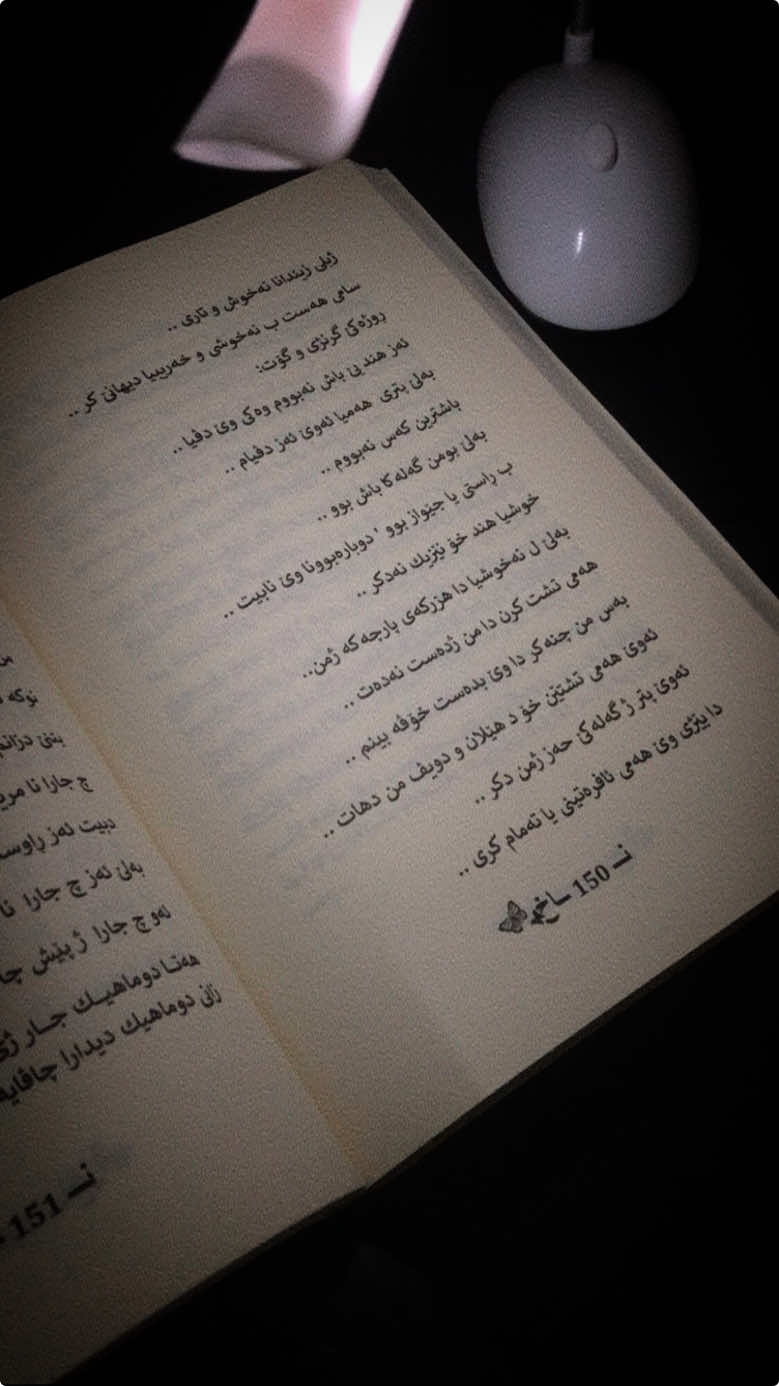 ژیلی زیندانا نەخوش و تاری ..
سامی هەست ب نەخوشی و خەریبیا دیهانێ کر ..
روژەکێ گرنژی و گۆت:
ئەز هند یێ باش نەبووم وەکی وێ دفیا ..
بەلێ بتری هەمیا ئەوێ ئەز دفیام ..
باشترین کەس نەبووم ..
بەلێ بومن گەلەکا باش بوو ..
ب ڕاستی یا جێواز بوو ' دوبارەبوونا وێ نابیت ..
خوشیا هند خۆ نێزیك نەدکر ..
بەلێ ل نەخوشیا دا هزرکەی پارچەکە ژمن..
هەمی تشت کرن دا من ژدەست نەدەت ..
بەس من چنەکر دا وێ بدەست خۆفە بینم ..
ئەوێ هەمی تشتێن خۆ د هێلان و دویف من دهات ..
ئەوێ بتر ژ گەلەکێ حەز ژمن دکر ..
دا بێژی وێ هەمی ئافرەتینی یا تەمام کری ..
نـ 150 ـاخ
نوکە
بنێ دزانم
چ جارا نا
دبیت ئەز ڕاوس
بەلێ ئەز چ جارا نا
ئەو چ جارا ژ پێش چا
هەتا دوماهیـك جـار ژک
زانی دوماهیك دیدارا چاڤایە
نـ 151